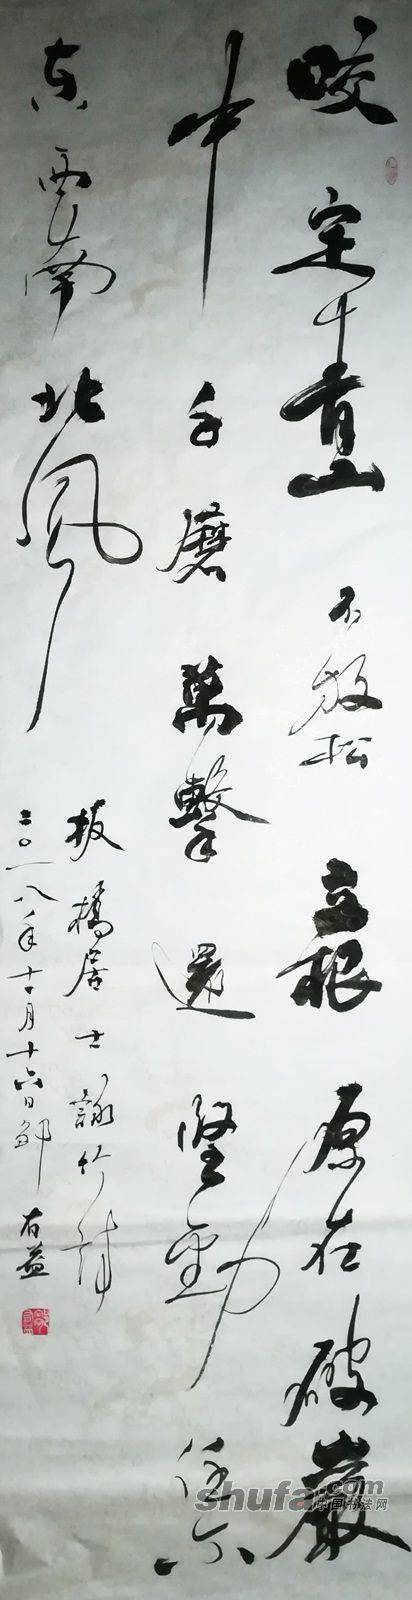 咬定青山不放松立根原在破巖
中千磨萬擊還堅勁任尒
东西南北風
板橋居士詠竹詩
二〇一八年十一月十六日鄒有益
shufa.com
中国书法网